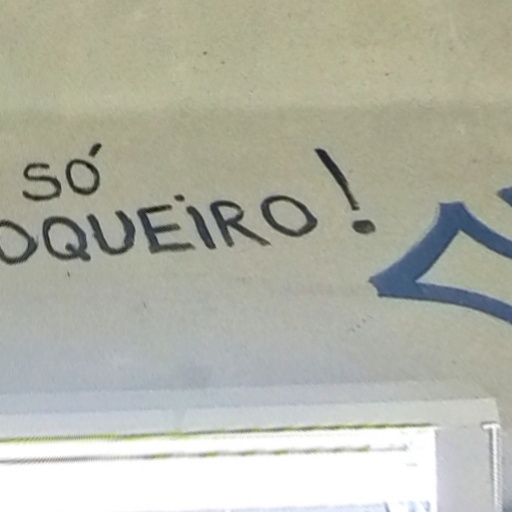 SÓ
OQUEiRO!